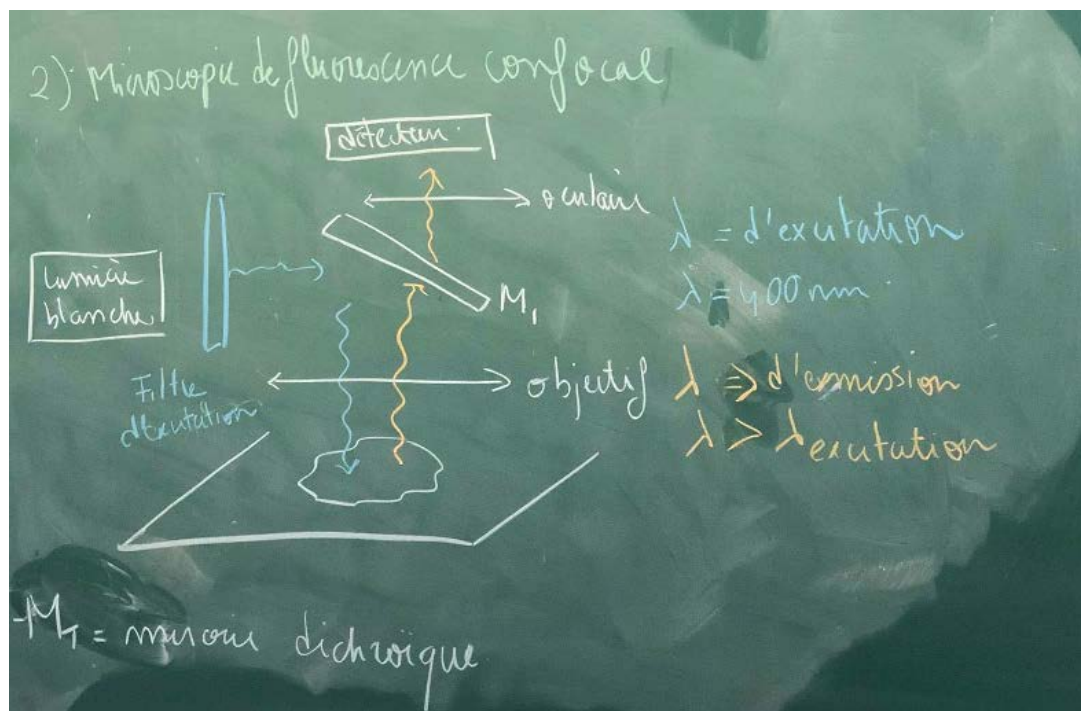 2) Microscopie de fluorescence confocal
détecteur
oculaire
λ = d'excitation
λ = 400 nm
Lumière
blanche
M₁
Filtre
d'excitation
objectif
λ => d'emission
λ > λexcitation
M₁ = miroir dichroïque